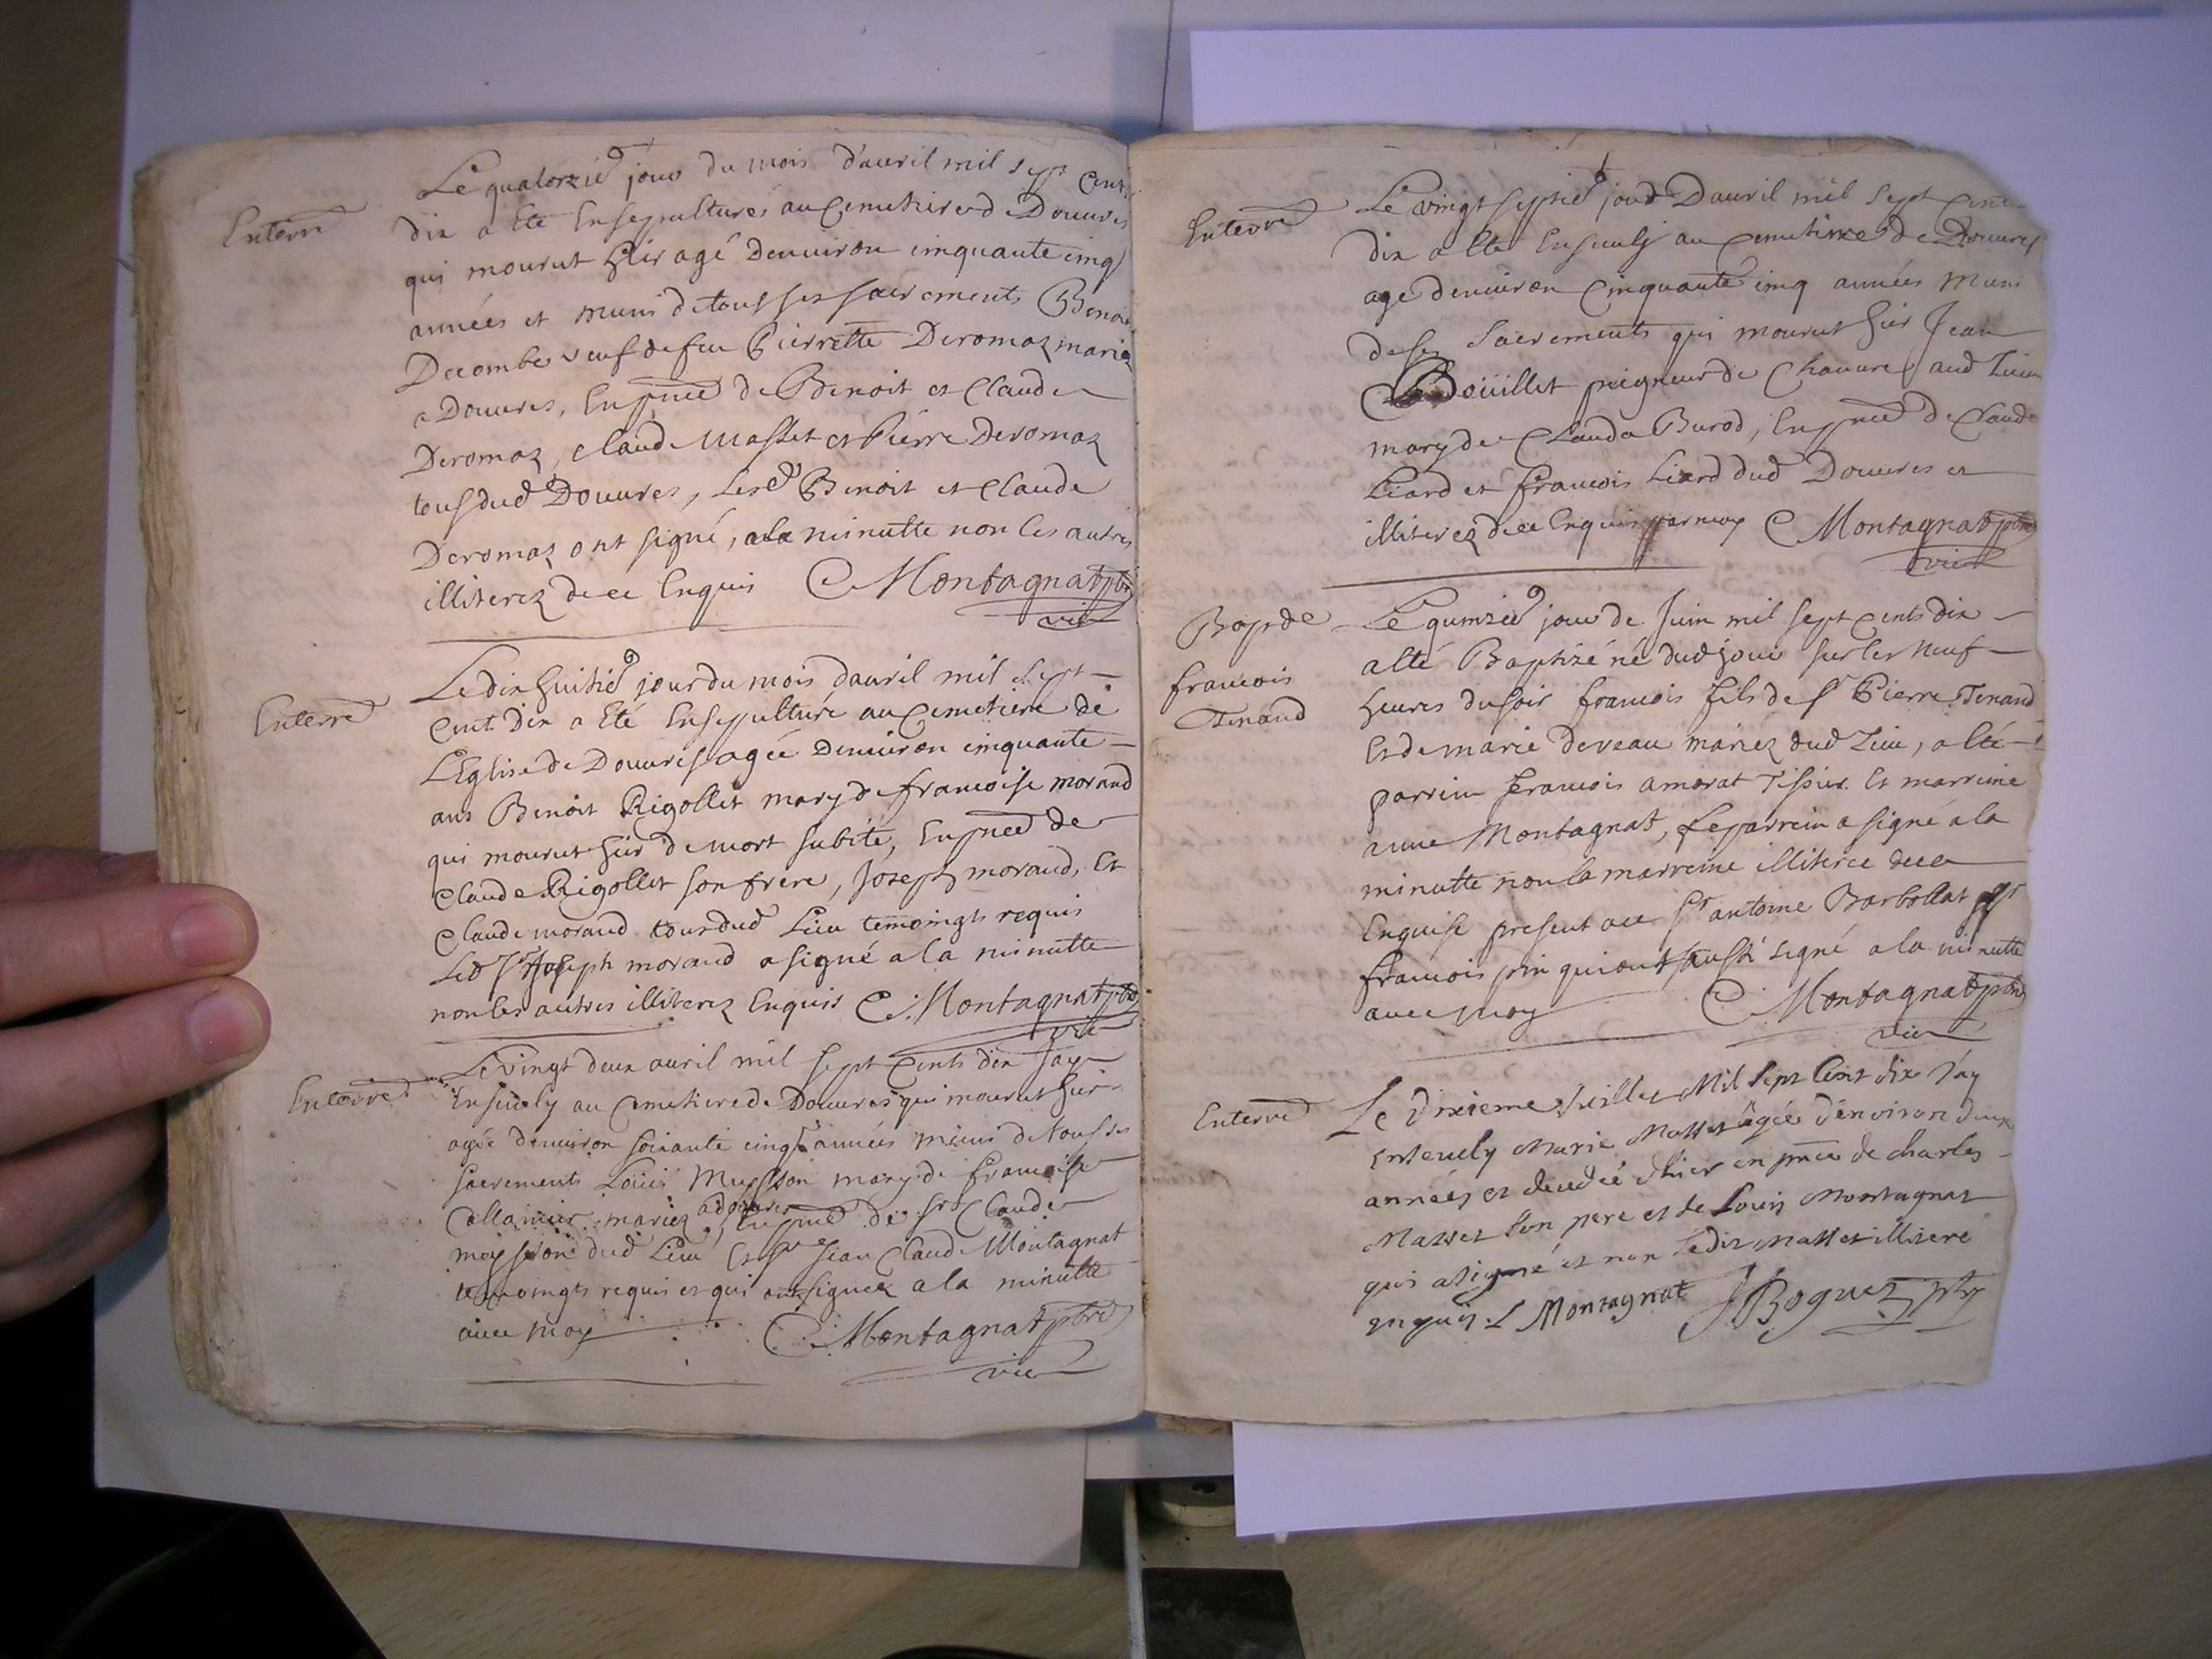 Enterré
Le quatorzie jour du mois d'auril mil sept cent
dix a Eté Ensepulturés au Cemetiere de Douures
qui mourut hier agé denuiron cinquante cinq
années et muni de tous ses sacrements Benoit
Decombe veuf de feu Pierrette Deromaz mariez
a Douures, En pnce de Benoit et Claude
Deromaz, claude Masset et Pierre Deromaz
tous dud Douures, Lesd Benoit et Claude
Deromaz ont signé, a la minutte non les autres
illiterez de ce Enquis C Montagnat ptre
vic
Enterré
Le dix huitie jour du mois dauril mil sept
cent Dix a Eté Ensepulturé au Cemetiere de
L'Eglise de Douures agée Denuiron cinquante
ans Benoit Rigollet mary de francoise morand
qui mourut hier de mort subite, En pnce de
Claude Rigollet son frere, Joseph morand, Et
Claude morand tous dud Lieu temoingts requis
Led Sr Joseph morand a signé a la minutte
non les autres illiterez Enquis C. Montagnat ptre
vic
Enterré
Le vingt deux auril mil sept Cents dix Jay
Enseuely au Cemetiere de Douures qui mourut hier
agée denuiron soixante cinq années muni de tous ses
sacrements Loüis Musson mary de francoise
Callamier mariez a douures, En pnce de sr Claude
dud Lieu Et sr Jean Claude Montagnat
temoingts requis et qui ont signez a la minutte
auec moy C. Montagnat ptre
vic
Enterré
Le vingt septie jour Dauril mil sept Cent
dix a Eté Enseuely au Cemetiere de Douures
age denuiron Cinquante cinq années Muni
de ses Sacrements qui mourut hier Jean
Boüillet peigneur de Chanure aud Lieu
mary de Clauda Burod, En pnce de Claude
Liard et francois Liard dud Douures et
illiterez de ce Enquis par moy C Montagnat ptre
vic
Bap de
francois
Tenand
Le quinzie jour de Juin mil sept Cents dix
a Eté Baptizé né dud jour sur les neuf
heures du soir francois fils de sr Pierre Tenand
Et de marie deveau mariez dud Lieu, a Eté
parrin francois amorat Tissier Et marreine
anne Montagnat, Le parrein a signé a la
minutte non la marreine illiteree de ce
Enquise present auec sr antoine Barbollat et sr
francois pin qui ont aussi signé a la minutte
auec moy C. Montagnat ptre
vic
Enterré
Le Dixieme Juillet Mil Sept Cent dix J'ay
Enseuely Marie Masset agée d'environ deux
années et decedée d'hier en pnce de charles
Masset son pere et de Louis Montagnat
qui a signé et non Ledit Masset illitere
enquis. L Montagnat J Boguet ptre